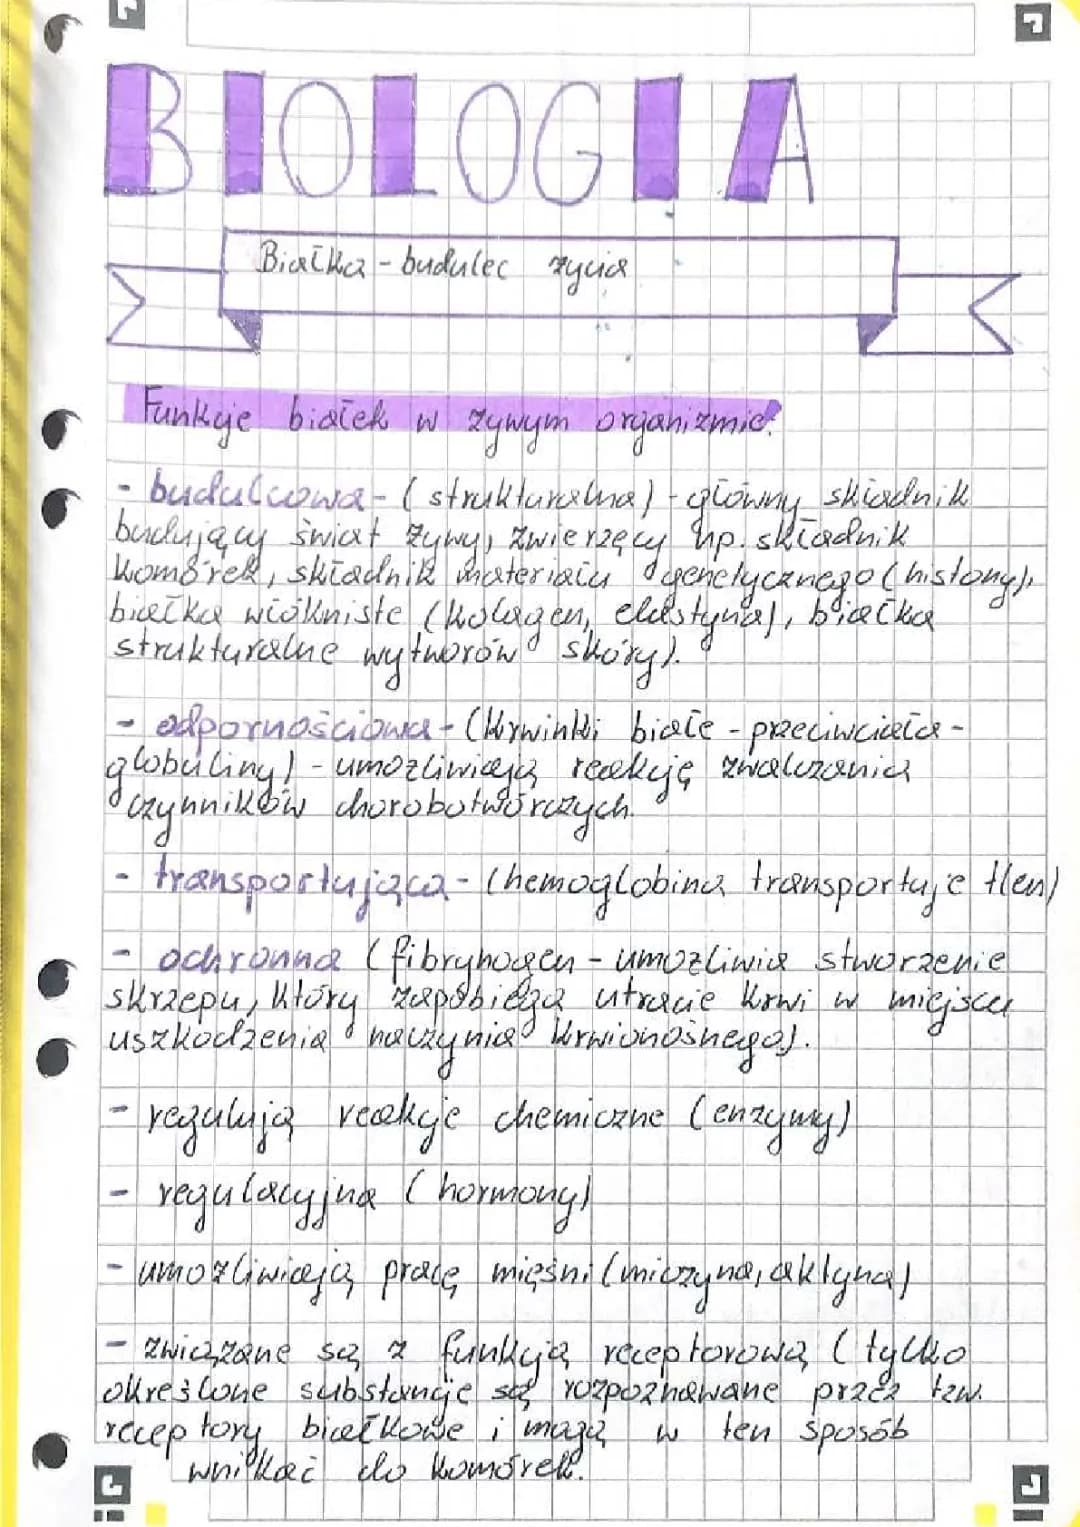 BIOLOGIA
Białka - budulec życia
Funkcje białek w żywym organizmie:
- budulcowa - (strukturalna) - główny składnik
budujący świat żywy, zwierzęcy np. składnik
komórek, składnik materiału genetycznego (histony),
białka włókniste (kolagen, elastyna), białka
strukturalne wytworów skóry).
- odpornościowa - (krwinki białe - przeciwciała -
globuliny) - umożliwiają reakcję zwalczania
czynników chorobotwórczych.
- transportująca - (hemoglobina transportuje tlen)
- ochronna (fibrynogen - umożliwia stworzenie
skrzepu, który zapobiega utracie krwi w miejscu
uszkodzenia naczynia krwionośnego).
- regulują reakcje chemiczne (enzymy)
- regulacyjna (hormony)
- umożliwiają pracę mięśni (miozyna, aktyna)
- związane są z funkcją receptorową (tylko
określone substancje są rozpoznawane przez tzw.
receptory białkowe i mogą w ten sposób
wnikać do komórek.